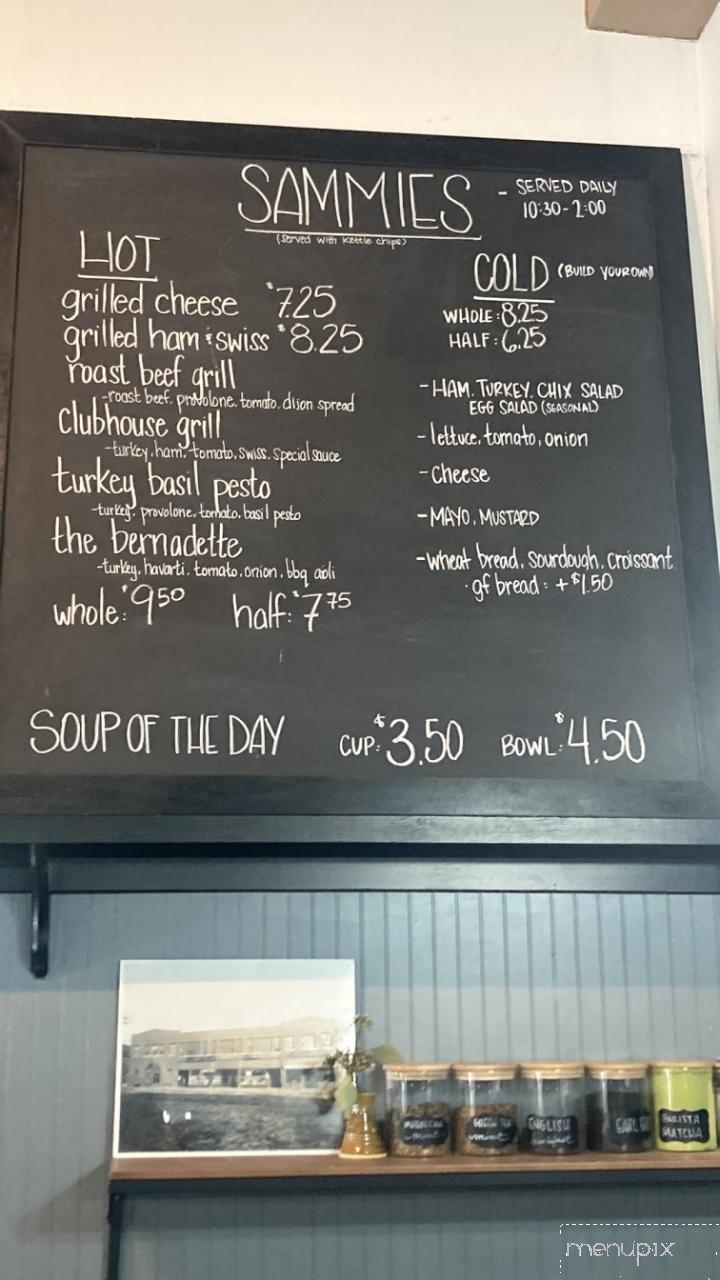 SAMMIES
- SERVED DAILY
10:30-2:00
(Served with Kettle chips)
HOT
grilled cheese $7.25
grilled ham & swiss $8.25
roast beef grill
-roast beef, provolone, tomato, dijon spread
clubhouse grill
-turkey, ham, tomato, swiss, special sauce
turkey basil pesto
-turkey, provolone, tomato, basil pesto
the bernadette
-turkey, havarti, tomato, onion, bbq aioli
whole: $9.50 half: $7.75
COLD (BUILD YOUR OWN)
WHOLE: 8.25
HALF: 6.25
- HAM, TURKEY, CHIX SALAD
EGG SALAD (SEASONAL)
- lettuce, tomato, onion
- Cheese
- MAYO, MUSTARD
- wheat bread, sourdough, croissant
· gf bread: +$1.50
SOUP OF THE DAY CUP: $3.50 BOWL: $4.50
MOROCCAN
mint
GREEN TEA
mint
ENGLISH
breakfast
EARL
MATCHA
menupix